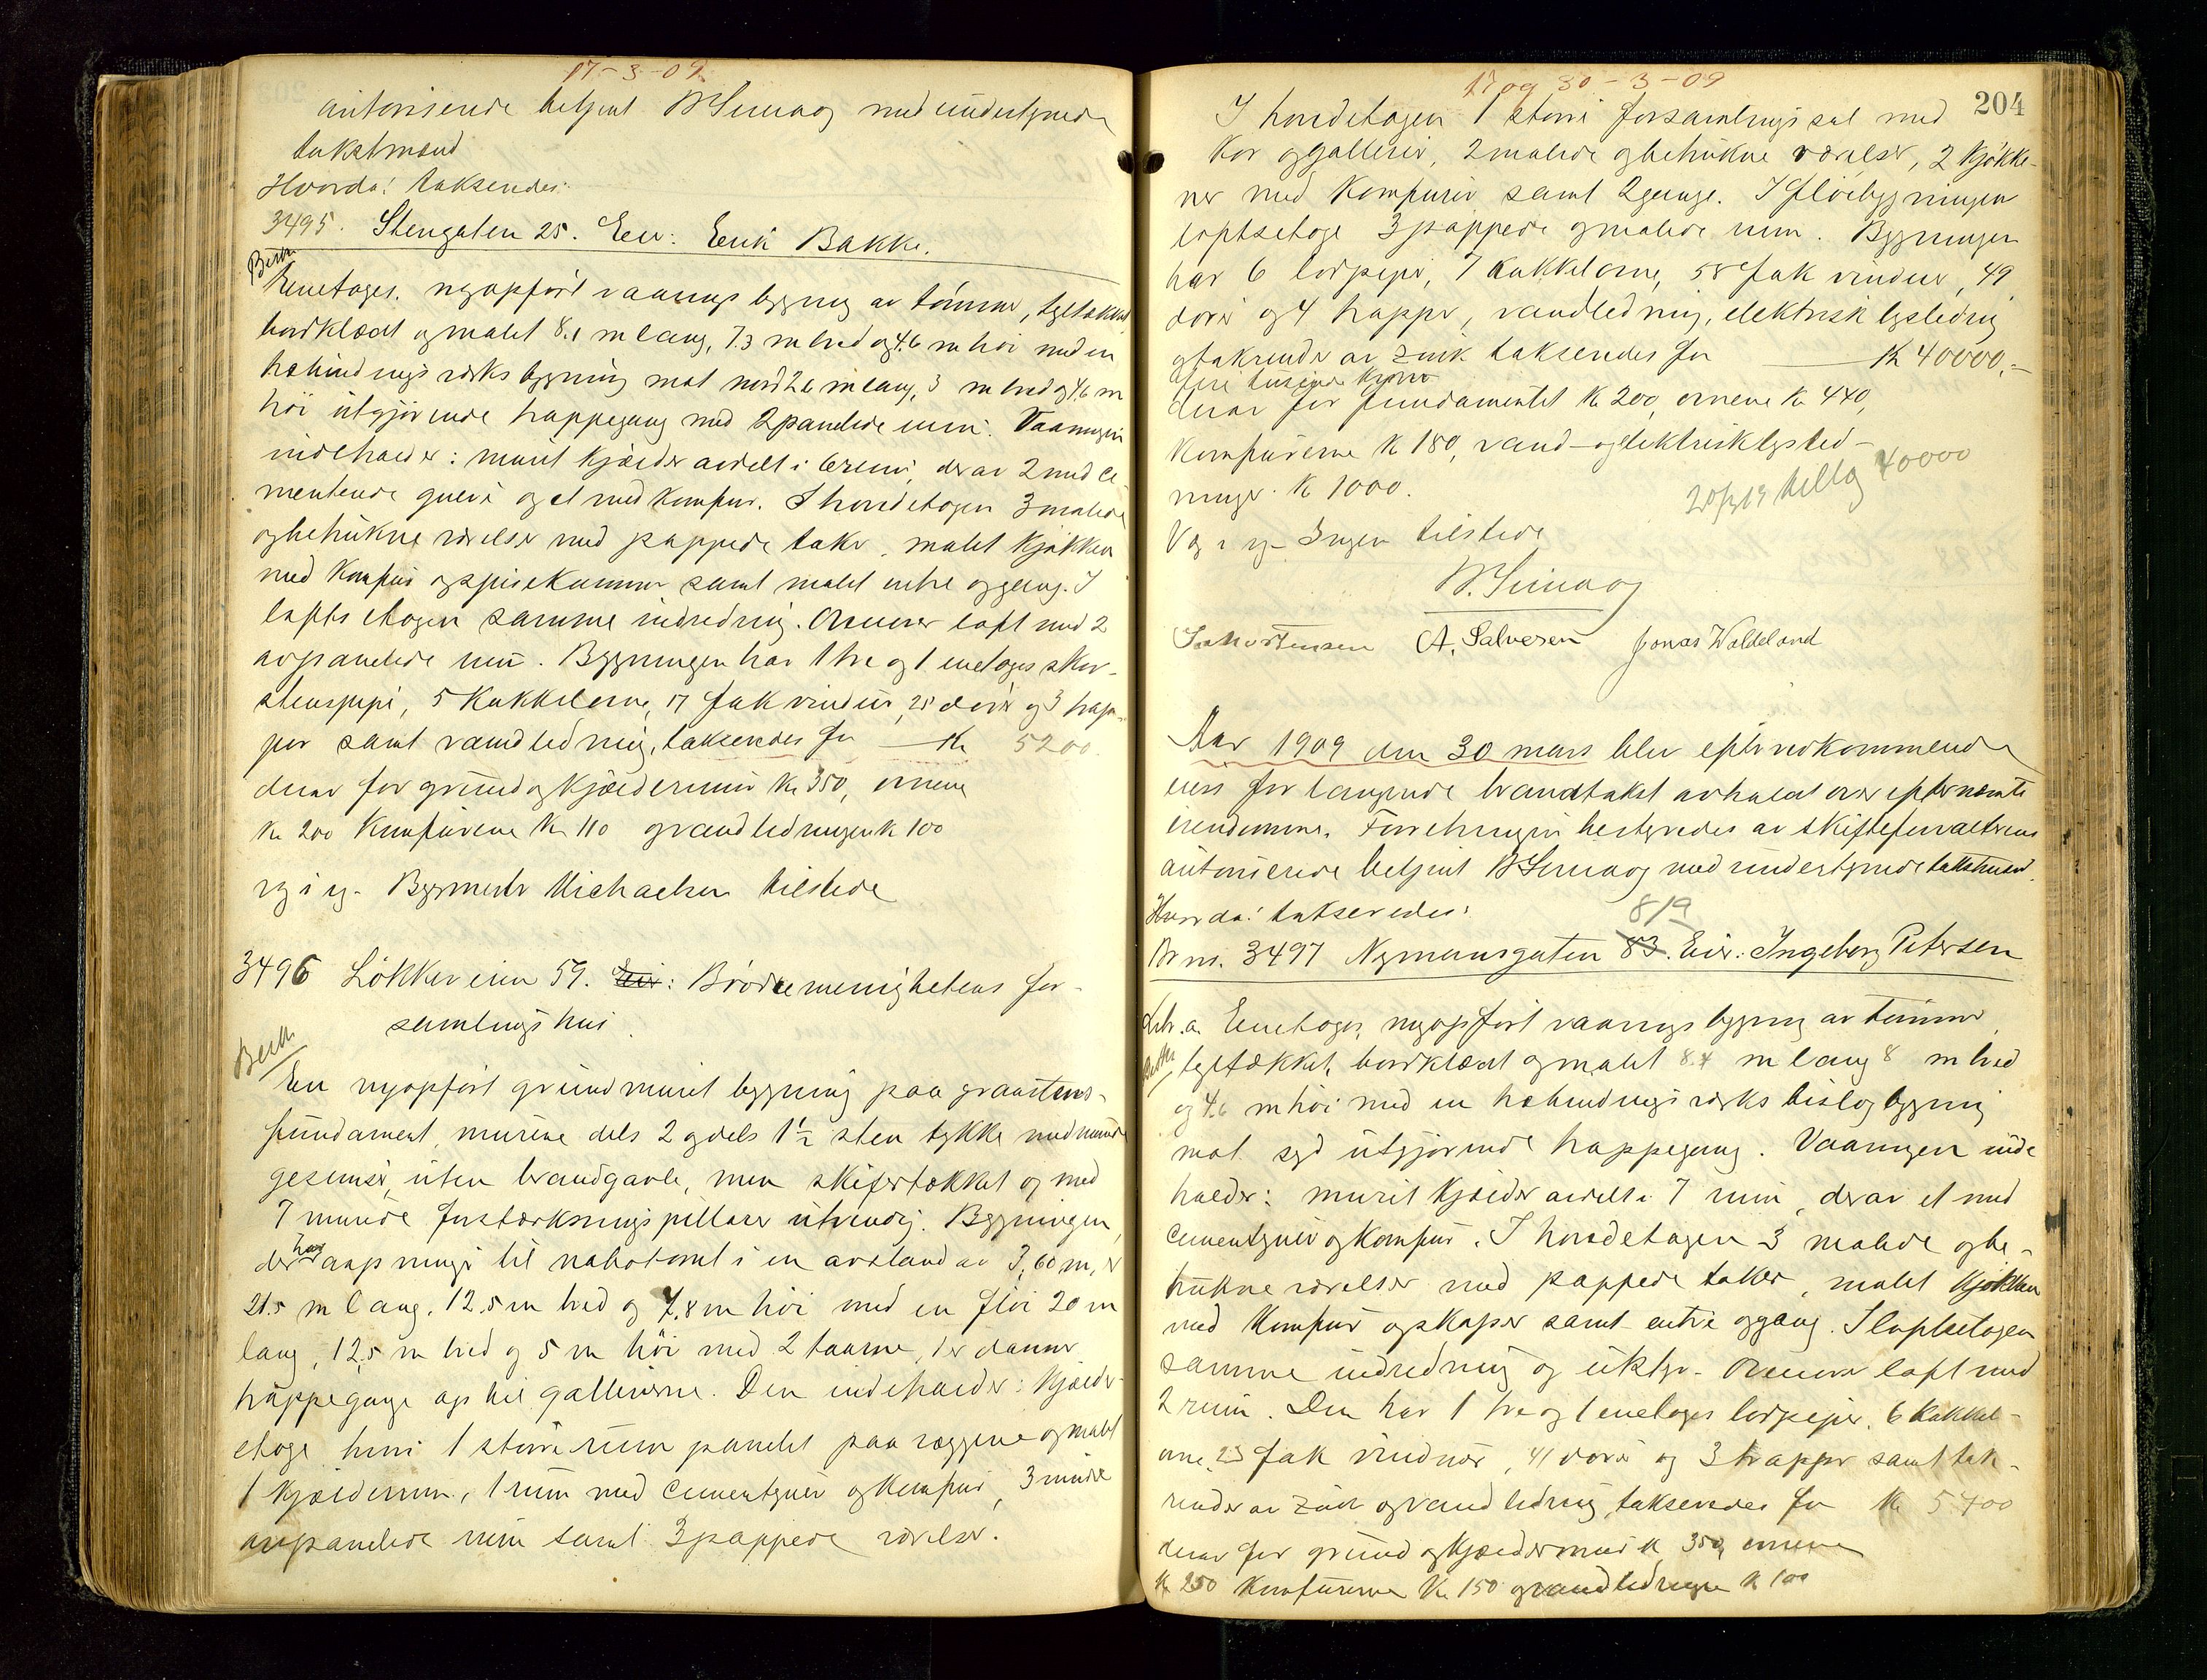 17-3-09
autoriserede betjent B Simaog med undertegnede
takstmænd
Hvorda! takseredes:
3495. Stengaten 25. Eier: Eerik Bakke.
Besk
Eenetages nyopført vaaningsbygning av tømmer, tegltækket
bordklædt og malet 8.1 m lang, 7.3 m bred og 4.6 m høi med en
halvindvungs bygning mot nord 2.6 m lang, 3 m bred og 4.6 m
høi utgjørende trappegang med 2 panelede rum. Vaaningen
indeholder: muret kjælder avdelt i 6 rum, derav 2 med ce-
menterede gulve og et med komfur. I hovedetagen 3 malede
og betrukne værelser med pappede take, malet kjøkken
med komfur og spisekammer samt malet entre og gang. I
loftsetagen samme indredning. Øverover loft med 2
avpanelede rum. Bygningen har 1 tre og 1 enetages skor-
stenspipe, 5 kakkelovne, 17 fak vinduer, 25 døre og 3 trap-
per samt vandledning, takseredes for Kr 5200.
derav for grund og kjældermur Kr 350, ovnene
Kr 200 Komfurene Kr 110 og vandledningen Kr 100
r g i g- Bygmester Michaelsen tilstede
3496 Løkkeveien 59. Eier: Brødremenighetens for-
samlingshus
Besk
En nyopført grundmuret bygning paa graastens-
fundament, murene dels 2 og dels 1½ sten tykke med murede
gesimser, uten brandgavle, men skifertækket og med
7 murede forstærkningspillarer utvendig. Bygningen,
der har aapninger til nabotomt i en avstand av 3,60 m, er
21.5 m lang, 12.5 m bred og 7.8 m høi med en fløi 20 m
lang, 12.5 m bred og 5 m høi med 2 taarne, der danner
trappegange op til gallerierne. Den indeholder: Kjælder-
etage hvori 1 større rum panelet paa væggene og malet
1 kjælderrum, 1 rum med cementgulv og komfur, 3 mindre
avpanelede rum samt 3 pappede værelser.
17 og 30-3-09
204
I hovedetagen 1 større forsamlingssal med
kor og gallerier, 2 malede og betrukne værelser, 2 kjøkke-
ner med komfurer samt 2 gange. I fløibygningen
loftsetage 3 pappede og malede rum. Bygningen
har 6 lodpiper, 7 kakkelovne, 58 fak vinduer, 49
døre og 4 trapper, vandledning, elektrisk lysledning
og takrender av zink takseredes for Kr 40000,-
firti tusinde Kroner
derav for fundamentet Kr 200, ovnene Kr 440,
Komfurerne Kr 180, vand- og elektrisk lysled-
ninger Kr 1000.
20/3 19 tillæg 40000
V g i g- Ingen tilstede
B. Simaog
A. Salvesen Jonas Waldeland
Aar 1909 den 30 mars blev efter vedkommende
eiers forlangende brandtakst avholdt over efternævnte
eiendomme. Forretningen bestyredes av skifteforvalterens
autoriserede betjent B Simaog med undertegnede takstmænd.
Hvorda! takseredes:
819
Br no. 3497 Nymansgaten 83. Eier: Ingeborg Petersen
Litr. a. Eenetages, nyopført vaaningsbygning av tømmer
Besk
tegltækket, bordklædt og malet 8.4 m lang 8 m bred
og 4.6 m høi med en halvindvungs bislagbygning
mot syd utgjørende trappegang. Vaaningen inde
holder: muret kjælder avdelt i 7 rum, derav et med
cementgulv og komfur. I hovedetagen 3 malede og be-
trukne værelser med pappede taker, malet kjøkken
med komfur og skaper samt entre og gang. I loftsetagen
samme indredning og utstyr. Øverover loft med
2 rum. Den har 1 tre og 1 enetages lodpiper, 6 kakkel-
ovne, 23 fak vinduer, 41 døre og 3 trapper samt tak-
render av zink og vandledning, takseredes for Kr 5400
derav for grund og kjældermur Kr 350, ovnene
Kr 250 Komfurerne Kr 150 og vandledningen Kr 100